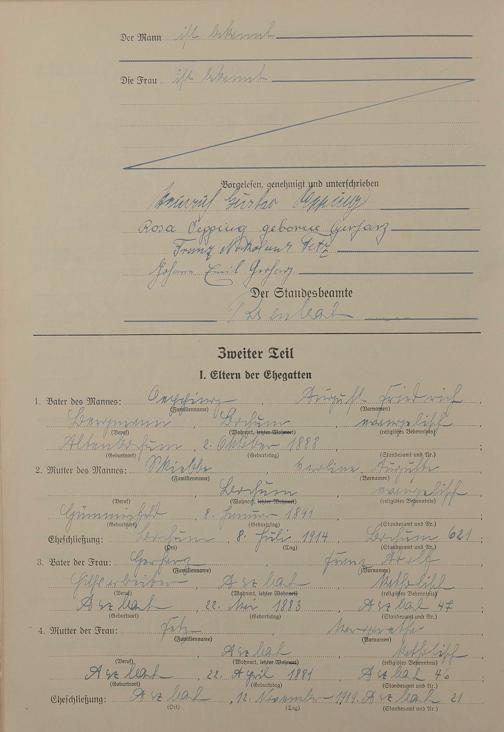 Der Mann ist bekannt
Die Frau ist bekannt
Vorgelesen, genehmigt und unterschrieben
Heinrich Gustav Oepping
Rosa Oepping geborene Gerharz
Franz Fetz
Johann Emil Gerharz
Der Standesbeamte
Zweiter Teil
I. Eltern der Ehegatten
1. Vater des Mannes: Oepping, August Friedrich
(Familienname) (Vornamen)
Bergmann, Bochum, evangelisch
(Beruf) (Wohnort, letzter Wohnort) (religiöses Bekenntnis)
Altenbochum, 2. Oktober 1888
(Geburtsort) (Geburtstag) (Standesamt und Nr.)
2. Mutter des Mannes: Auguste
(Familienname) (Vornamen)
Bochum, evangelisch
(Beruf) (Wohnort, letzter Wohnort) (religiöses Bekenntnis)
8. Januar 1891
(Geburtsort) (Geburtstag) (Standesamt und Nr.)
Eheschließung: Bochum, 8. Juli 1914, Bochum 621
(Ort) (Tag) (Standesamt und Nr.)
3. Vater der Frau: Gerharz, Franz
(Familienname) (Vornamen)
Hilfsarbeiter, Arzbach, katholisch
(Beruf) (Wohnort, letzter Wohnort) (religiöses Bekenntnis)
Arzbach, 22. Mai 1883, Arzbach 47
(Geburtsort) (Geburtstag) (Standesamt und Nr.)
4. Mutter der Frau: Fetz, Margarethe
(Familienname) (Vornamen)
Arzbach, katholisch
(Beruf) (Wohnort, letzter Wohnort) (religiöses Bekenntnis)
Arzbach, 22. April 1881, Arzbach 40
(Geburtsort) (Geburtstag) (Standesamt und Nr.)
Eheschließung: Arzbach, 12. November 1919, Arzbach 21
(Ort) (Tag) (Standesamt und Nr.)